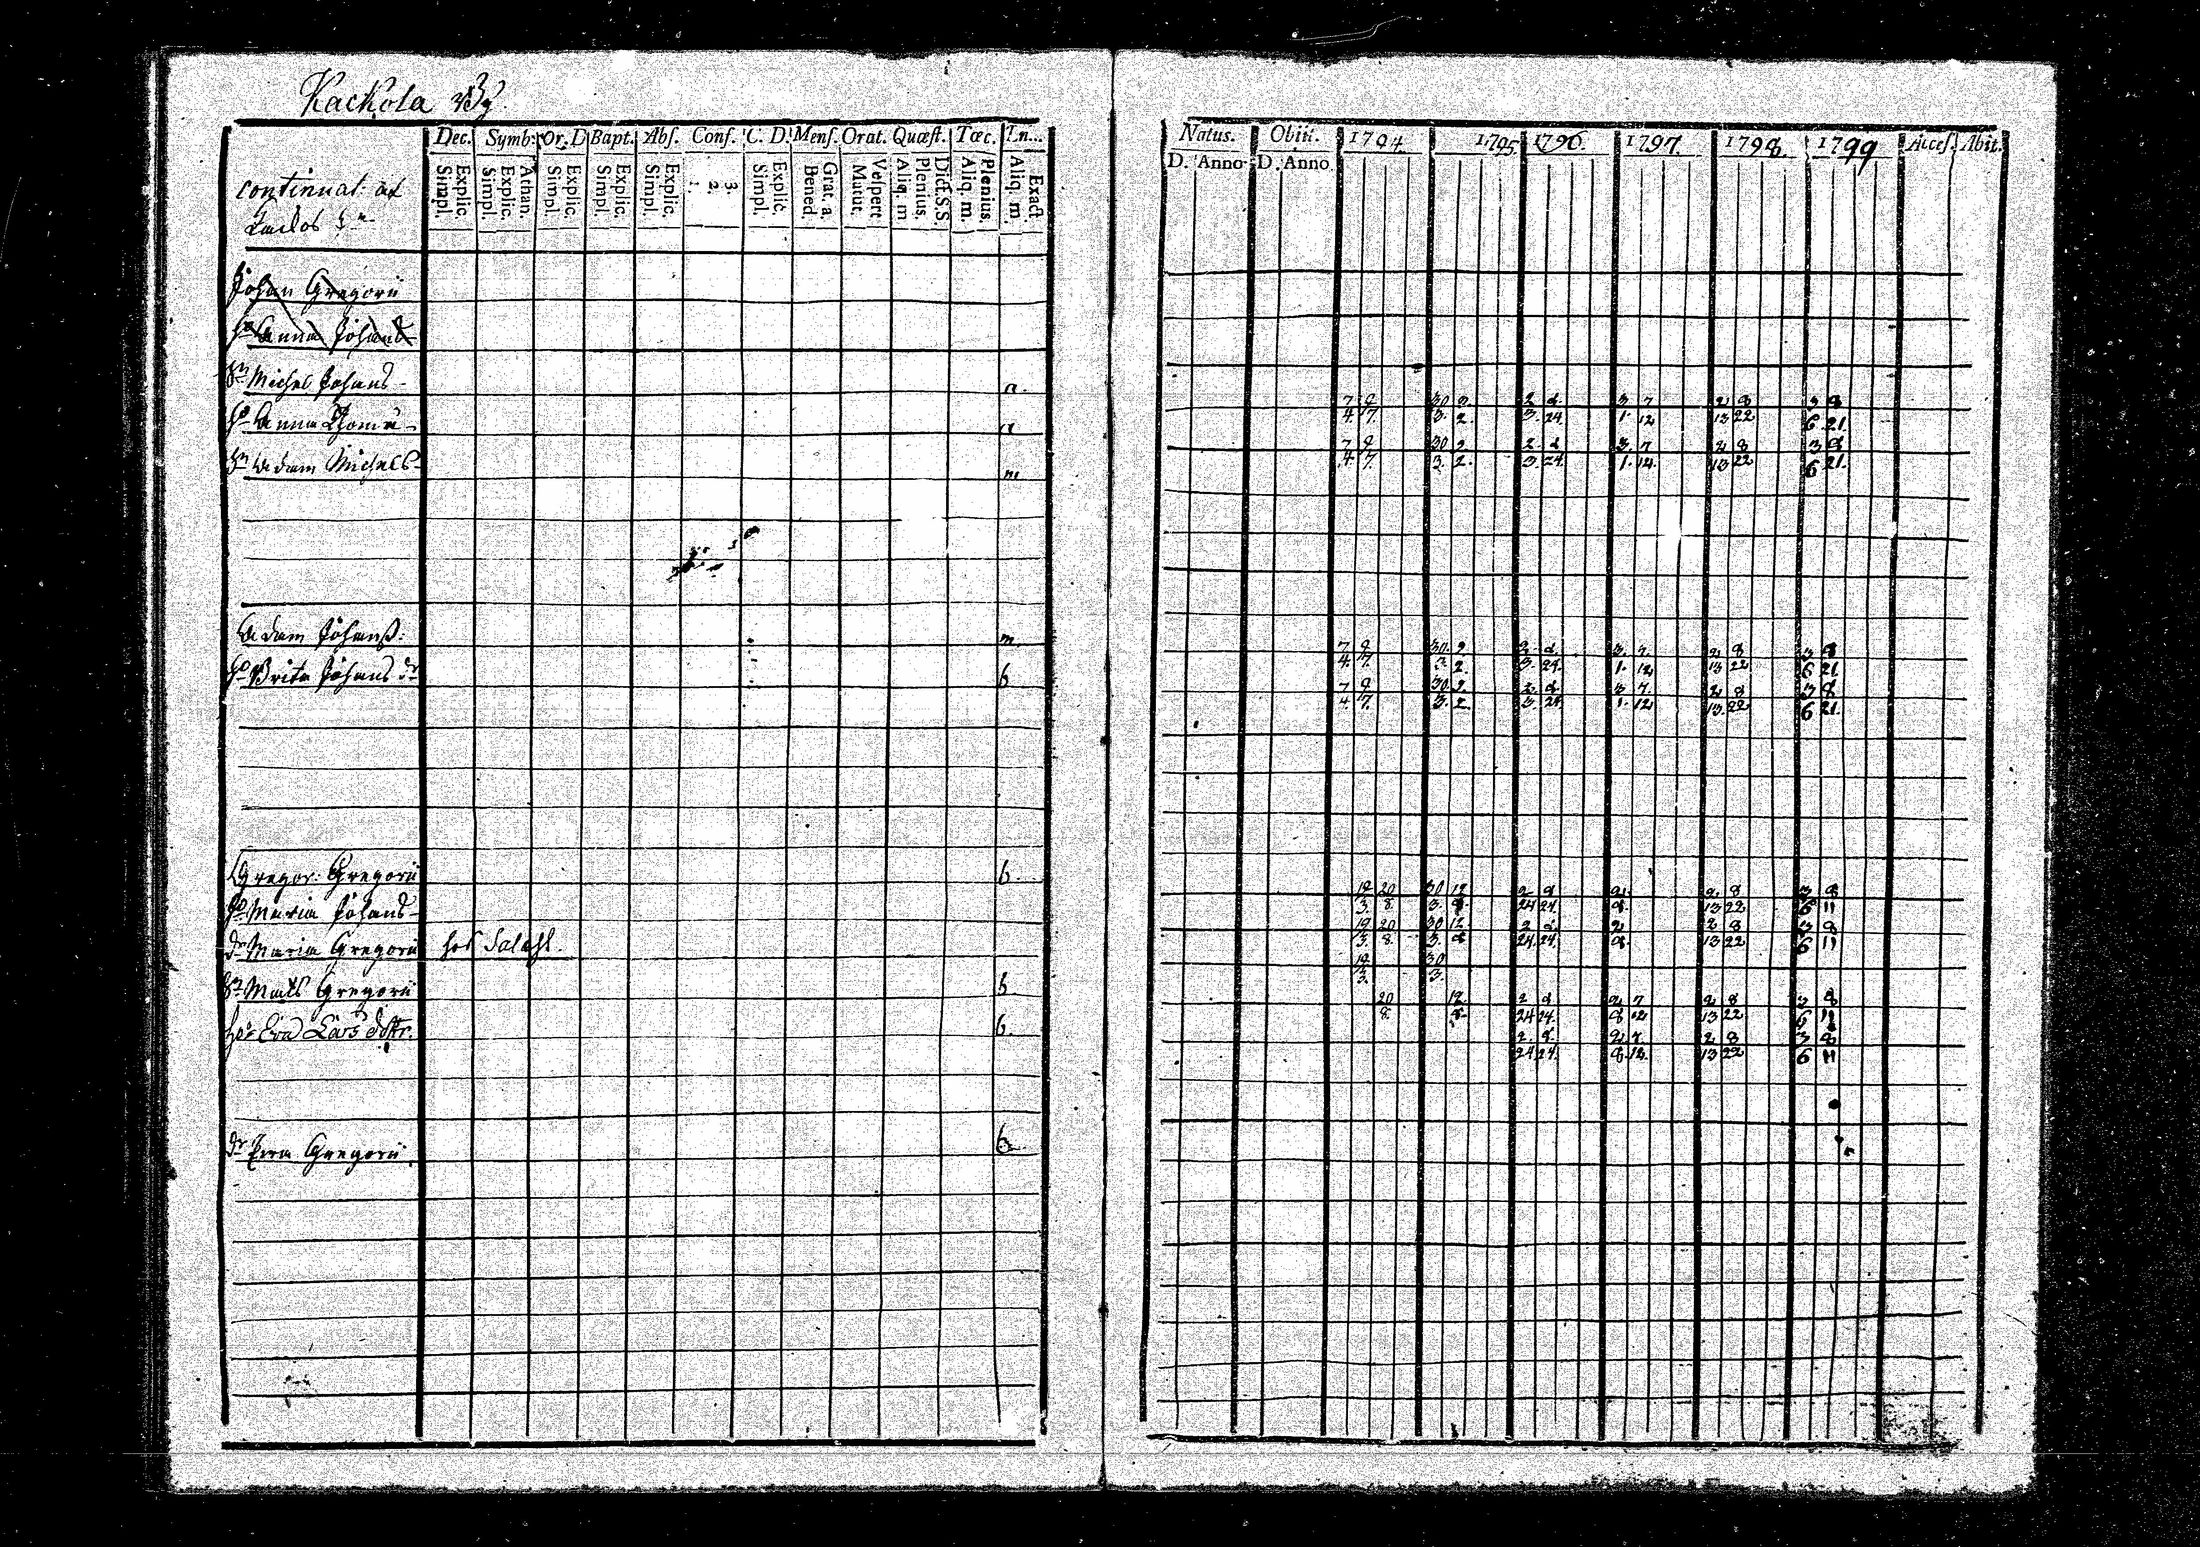 Kackola By
Dec. Symb: Or. D Bapt. Abs. Conf. C. D. Mens. Orat. Quæst. Tæc. In...
Explic. Simpl. Athan. Explic. Simpl. Explic. Simpl. Explic. Simpl. Explic. Simpl. 3. 2. 1. Explic. Simpl. Grat. a. Bened. Velpert Matut. Dict. S.S Plenius. Aliq. m Plenius. Aliq. m. Exact Aliq. m.
continuat. af
Johan Gregorii
ho Anna Johans
Sn Michel Johans a.
ho Anna Thomæ a
Sn Adam Michels m
Adam Johanss: m
ho Brita Johans dr b
Gregor: Gregorii b.
ho Maria Johans
dr Maria Gregorii hos
Sn Mats Gregorii b
ho Eva Lars dottr. b.
dr Eva Gregorii b
Natus. Obiti. 1794 1795 1796. 1797. 1798. 1799 Acces. Abit.
D. Anno D. Anno
7 9 30 9 2 d 3 7 2 8 3 8
4. 7. 3. 2 3. 24 1. 12 13 22 6 21.
7 9 30 9 2 d 3. 7 2 8 3 8
4. 7. 3. 2. 3. 24. 1. 12. 13 22 6 21.
7 9 30. 9 2 d. 3. 7. 2 8 3 8
4. 7. 3. 2 3. 24. 1. 12 13 22 6 21
7 9 30. 9. 2 d. 3 7. 2 8 3 8
4 7. 3. 2 3 24 1. 12 13. 22 6 21.
19 20 30 12 2 d 2. 2 8 3 8
3. 8. 3. 8. 24 24. 8. 13 22 6 11
19 20 30 12 2 d. 2 2 8 3 8
3. 8. 3. 8 24. 24. 8. 13 22 6 11
19 30
3. 3.
20 12. 2 d 2 7 2 8 3 8
8. 8. 24 24. 8 12 13 22 6 11
2. d. 2 7. 2 8 3 8
24 24. 8. 12. 13 22 6 11